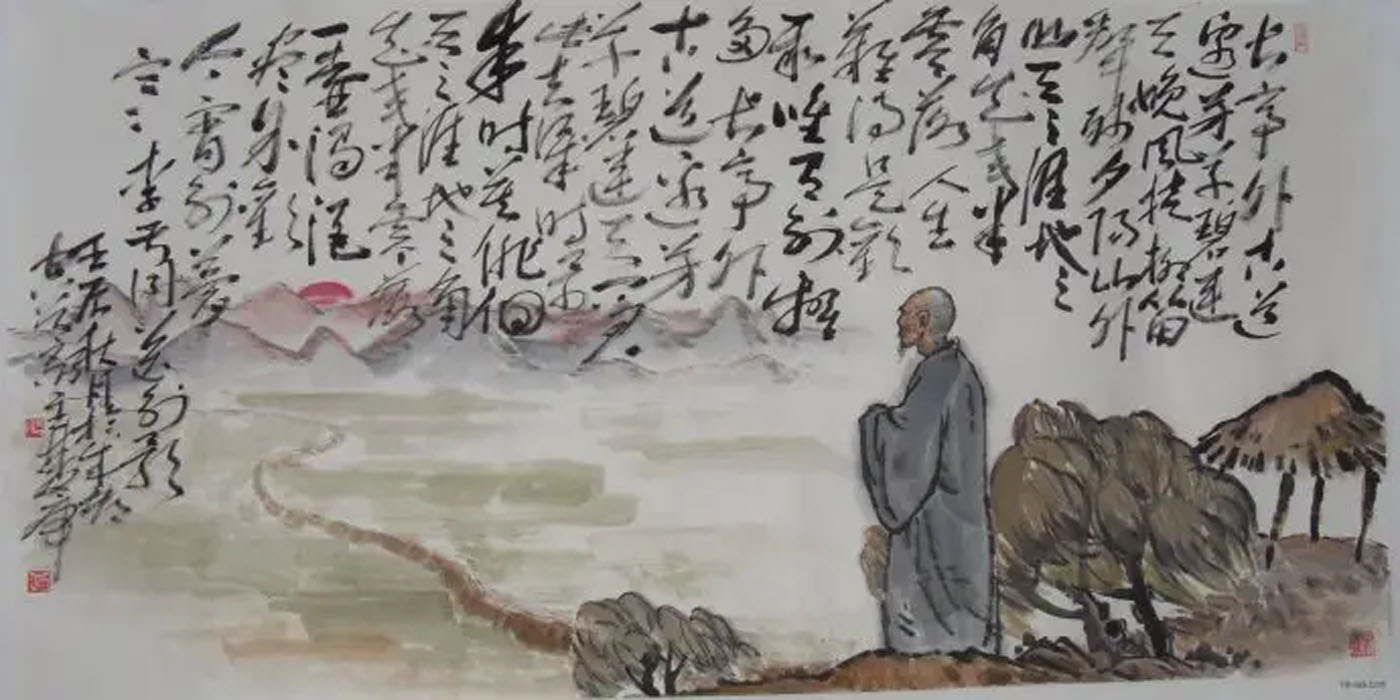 长亭外古道
边芳草碧连
天晚风拂柳笛
声残夕阳山外
山天之涯地之
角知交半
零落人生
难得是欢
聚唯有别离
多长亭外
古道边芳
草碧连天问君
此去几时还
来时莫徘徊
天之涯地之角
知交半零落
一壶浊酒
尽余欢
今宵别梦
寒 李叔同送别歌
壬辰秋月於成都